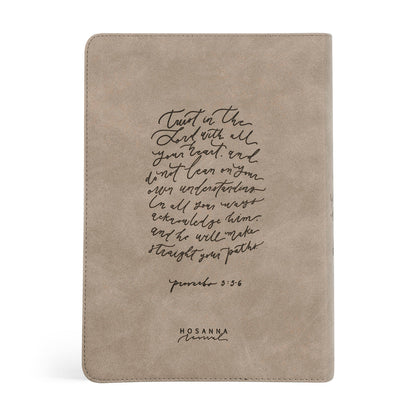 Trust in the
Lord with all
your heart, and
do not lean on your
own understanding
in all your ways
acknowledge him,
and he will make
straight your paths
proverbs 3:5-6
HOSANNA
revival